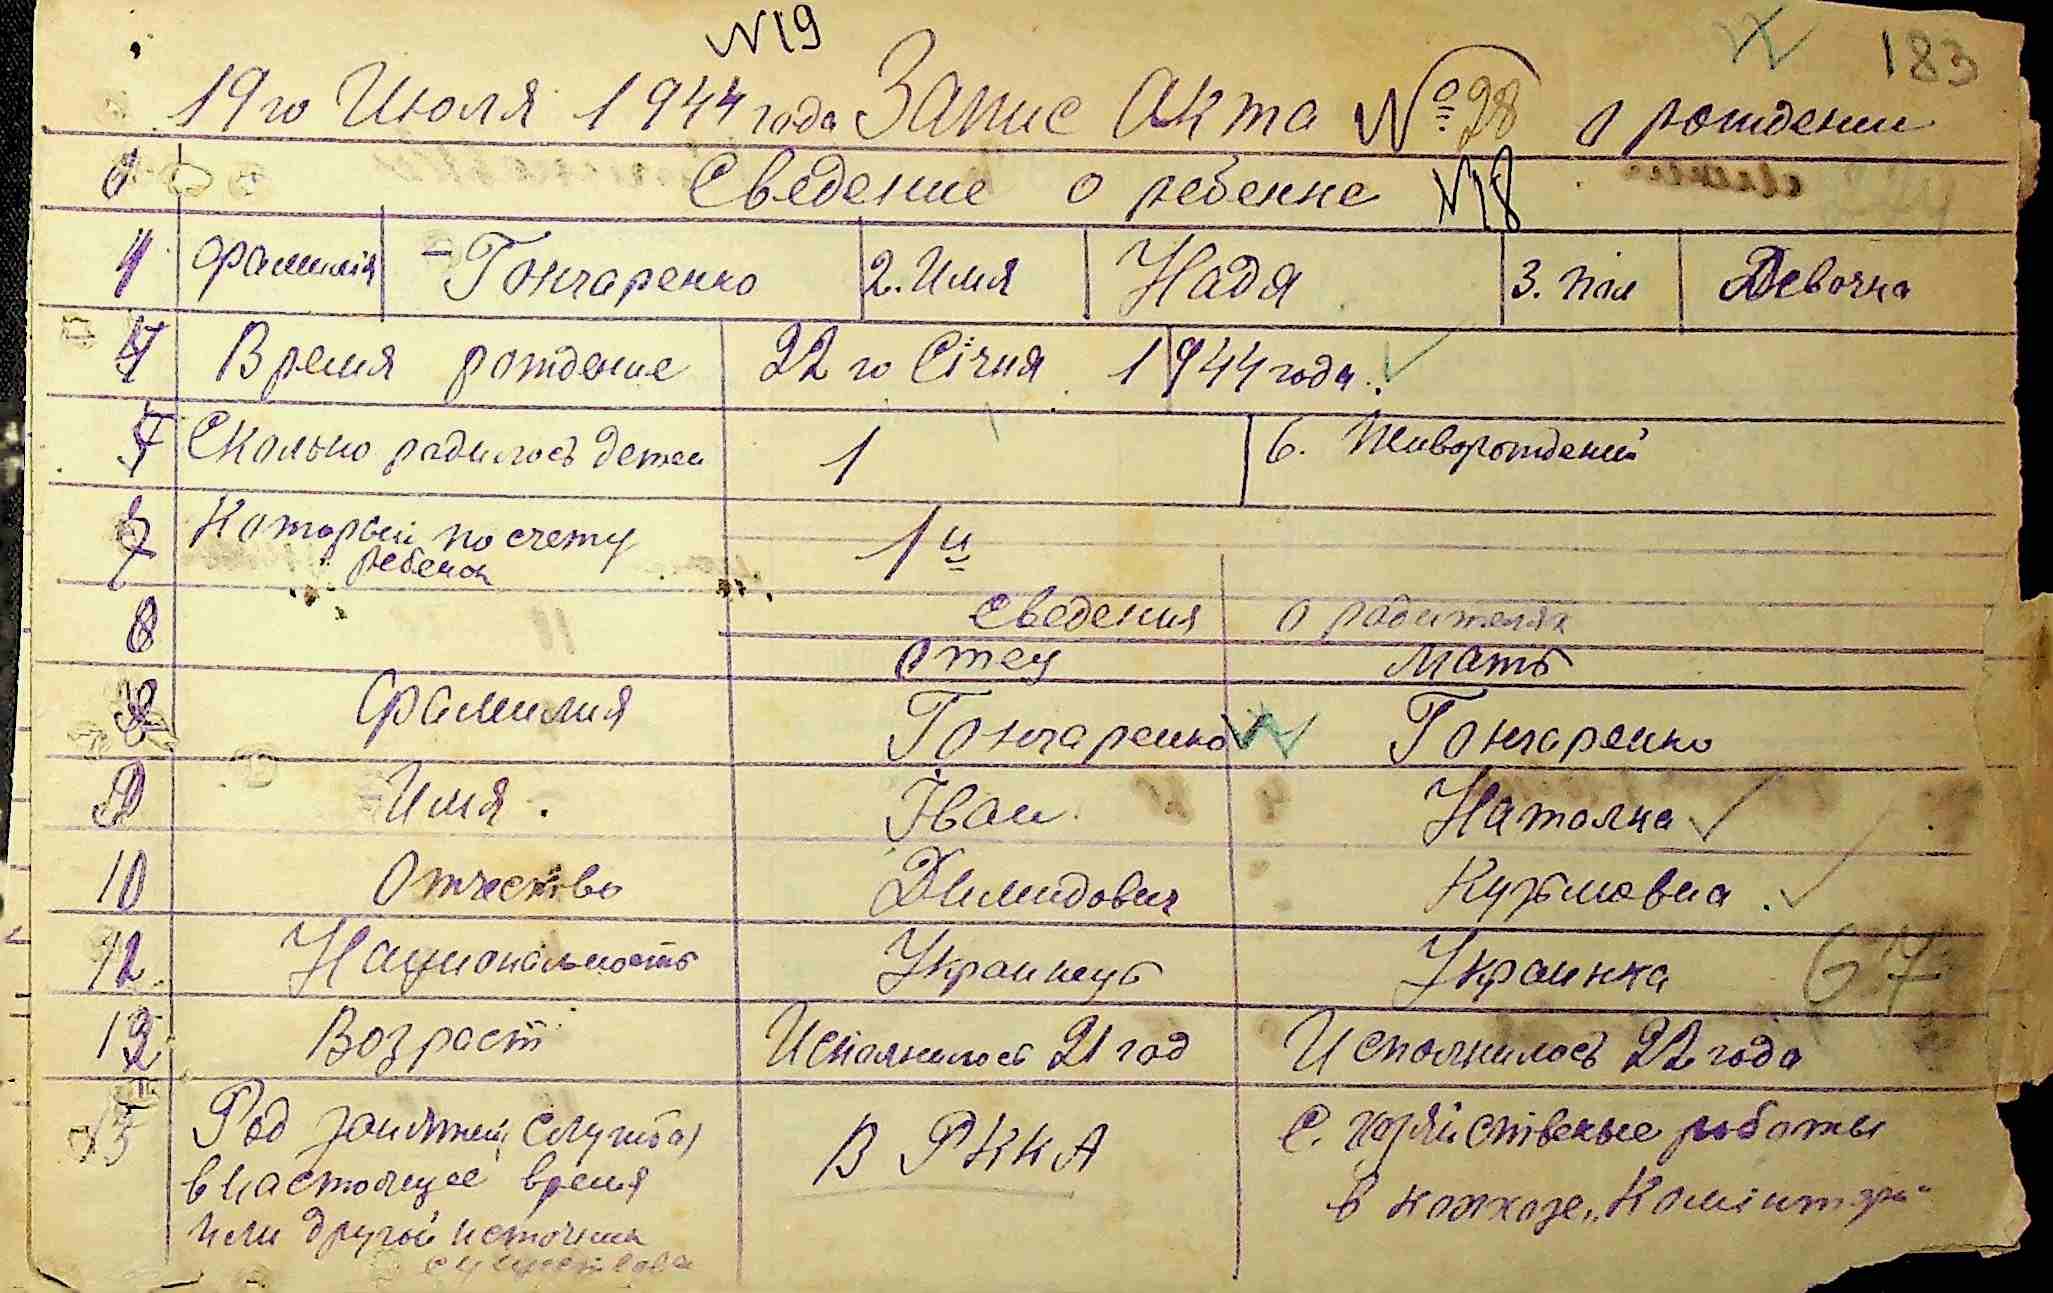 N19
183
19го Июля 1944 года Запис Акта № 28 о рождении
Сведение о ребенке N18
1 Фамилія Гончаренко 2. Имя Надя 3. пол Девочка
4 Время рождение 22 го Січня 1944 года.
5 Сколько родилось детей 1 6. Живорождений
7 Который по счету ребенок 1й
8 сведения о родителях
Отец Мать
Фамилия Гончаренко Гончаренко
9 Имя. Іван Наталка
10 Отчество Димидович Кузьмовна.
12 Национальность Украинець Украинка
67
13 Возраст Исполнилось 21 год Исполнилось 22 года
15 Род занятий (служба) в настоящее время или другой источник существова
В РККА
С. хозяйственые работы
в колхозе „Комінтерн"